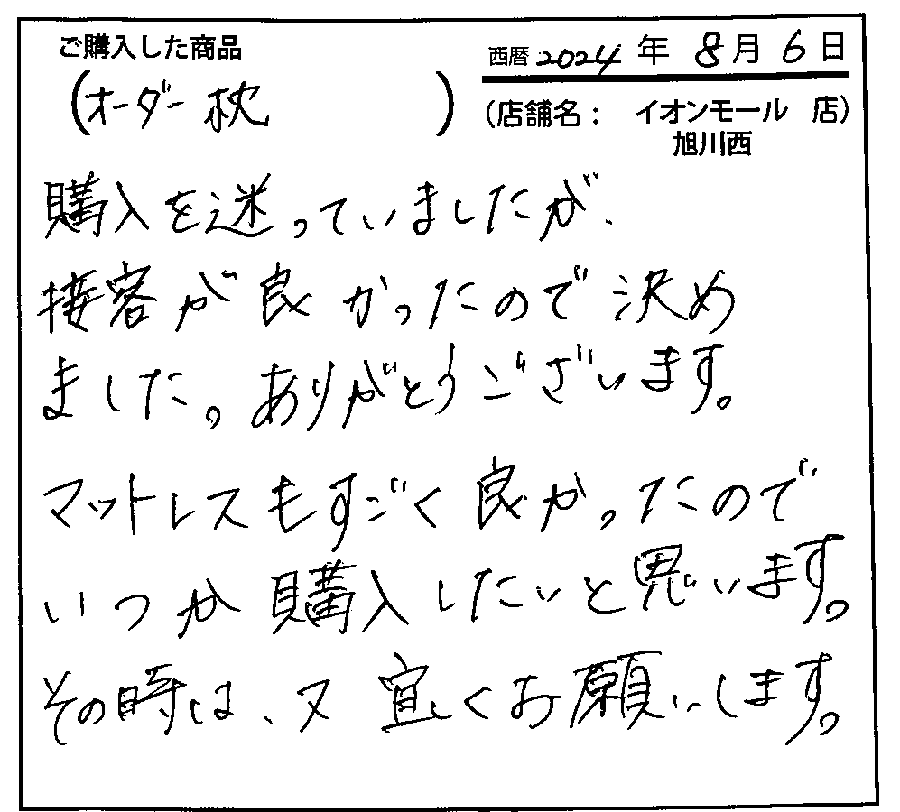 ご購入した商品
西暦 2024 年 8 月 6 日
(オーダー枕)
(店舗名: イオンモール 店)
旭川西
購入を迷っていましたが、
接客が良かったので決め
ました。ありがとうございます。
マットレスもすごく良かったので
いつか購入したいと思います。
その時は、又宜しくお願いします。